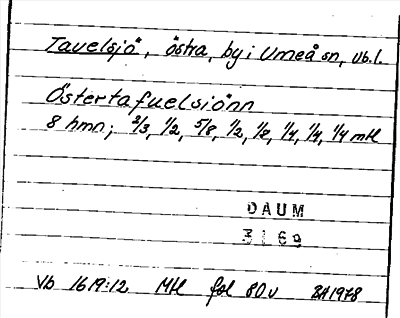 Tavelsjö, östra, by i Umeå sn, Vb.l.
Östertafuelsiönn
8 hmn; 2/3, 1/2, 5/8, 1/2, 1/2, 1/4, 1/4, 1/4 mtl
DAUM
3169
Vb 1619:12 Mtl fol 80v BA1978